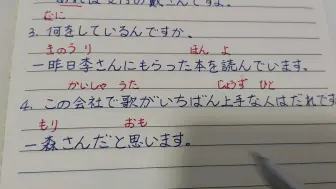 なに
3. 何をしているんですか。
きのう り ほん よ
ー昨日李さんにもらった本を読んでいます。
かいしゃ うた じょうず ひと
4. この会社で歌がいちばん上手な人はだれです
もり おも
ー森さんだと思います。